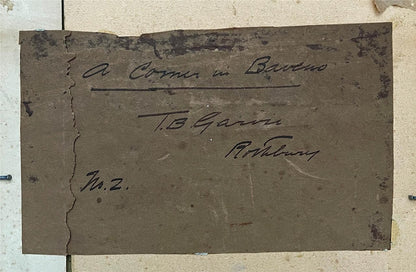 A Corner in Baveno
T.B Garvie
Rothbury
M. 2.